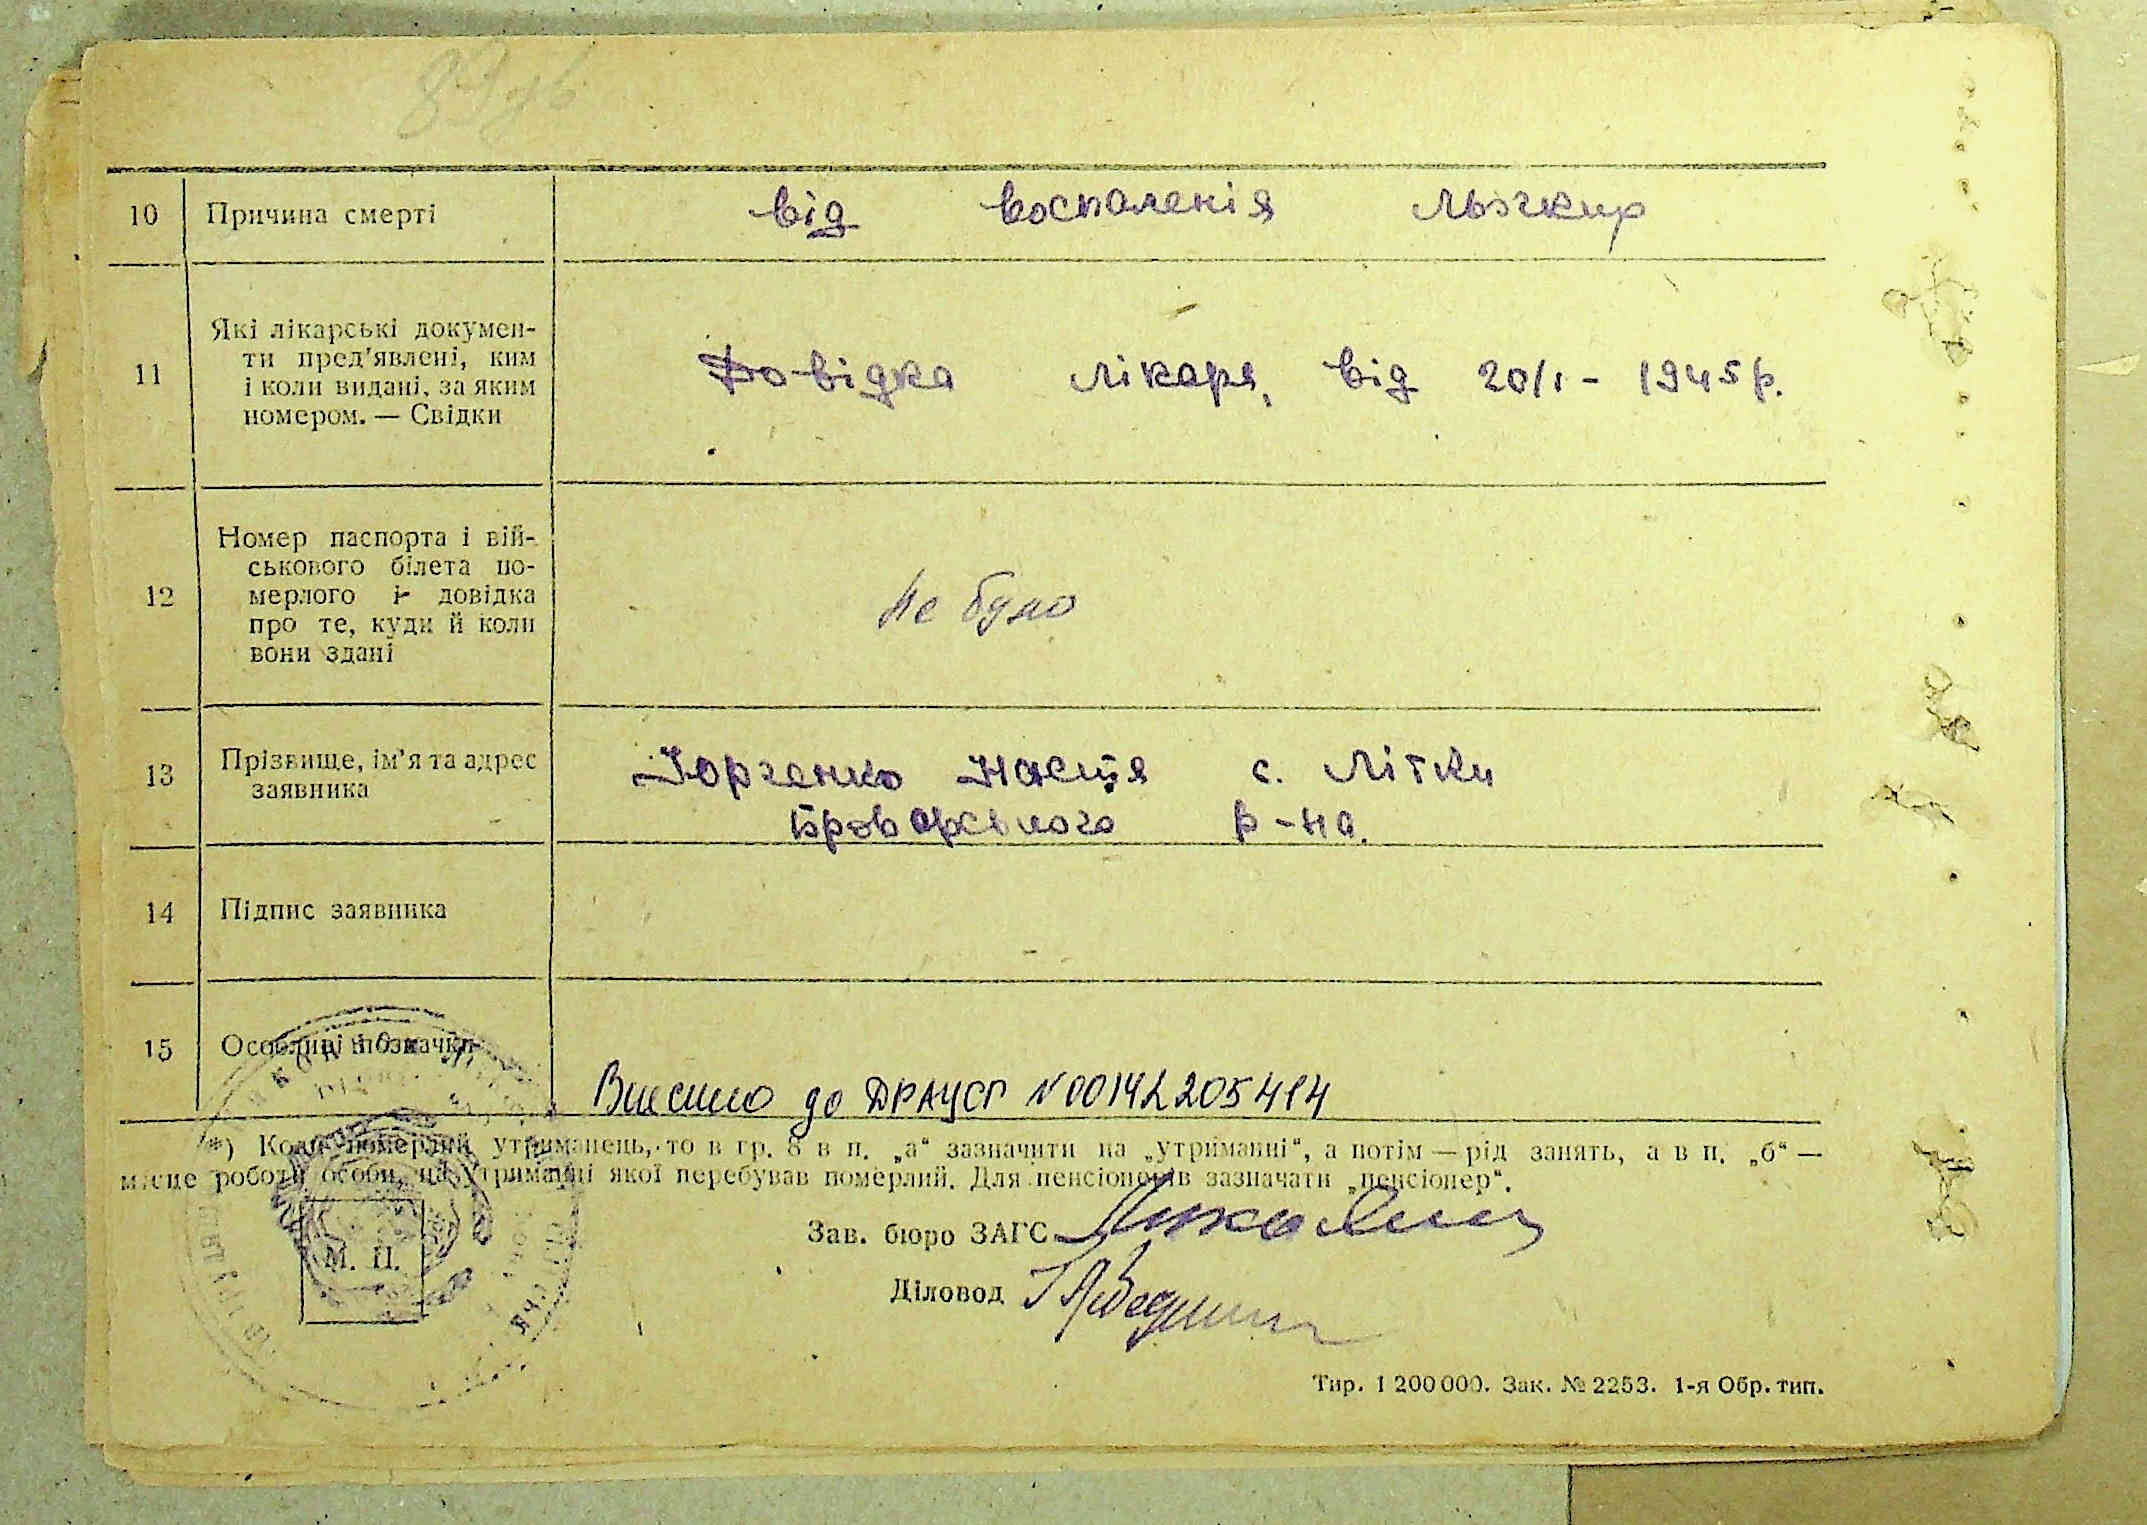 10 Причина смерті від воспаленія льогких
11 Які лікарські докумен-
ти пред'явлені, ким
і коли видані, за яким
номером. — Свідки
Довідка лікаря, від 20/I - 1945 р.
12 Номер паспорта і вій-
ськового білета по-
мерлого і довідка
про те, куди й коли
вони здані
Не було
13 Прізвище, ім'я та адрес
заявника
Юрченко Настя с. Літки
Броварського р-на.
14 Підпис заявника
15 Особливі позначки
Внесено до ДРАЦСГ N 00142205414
*) Коли померлий утриманець, то в гр. 8 в п. „а“ зазначити на „утриманні“, а потім — рід занять, а в п. „б“ —
місце роботи особи, на утриманні якої перебував померлий. Для пенсіонерів зазначати „пенсіонер“.
Зав. бюро ЗАГС
М. П.
Діловод
Тир. 1 200 000. Зак. № 2253. 1-я Обр. тип.